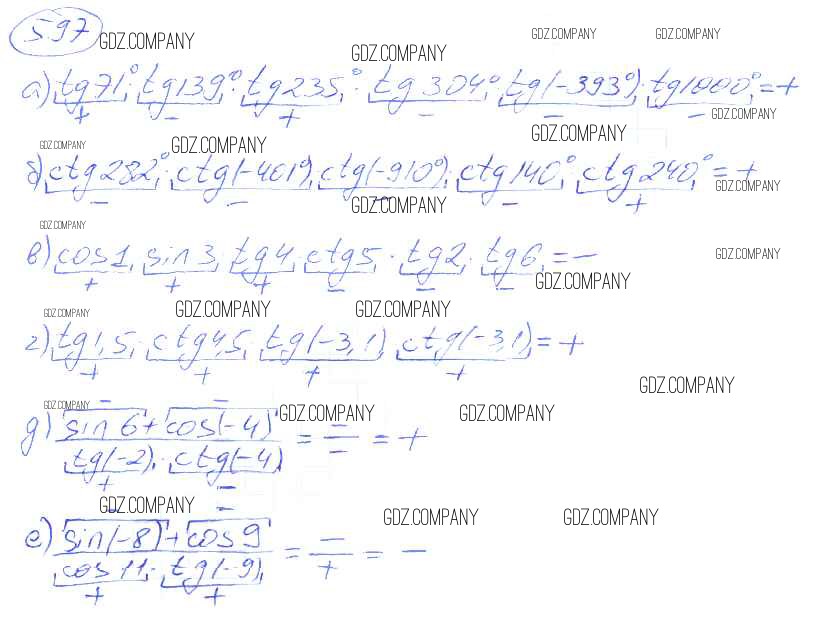 597
GDZ.COMPANY GDZ.COMPANY GDZ.COMPANY GDZ.COMPANY
а) tg71° · tg139° · tg235° · tg304° · tg(-393°) · tg1000° = +
+ - + - - -
GDZ.COMPANY
GDZ.COMPANY GDZ.COMPANY GDZ.COMPANY
б) ctg282° · ctg(-401°) · ctg(-910°) · ctg140° · ctg240° = +
GDZ.COMPANY
- - - - +
GDZ.COMPANY
GDZ.COMPANY
в) cos1 · sin3 · tg4 · ctg5 · tg2 · tg6 = -
GDZ.COMPANY
+ + + - - -
GDZ.COMPANY
GDZ.COMPANY GDZ.COMPANY GDZ.COMPANY
г) tg1,5 · ctg4,5 · tg(-3,1) · ctg(-3,1) = +
+ + + +
GDZ.COMPANY
GDZ.COMPANY GDZ.COMPANY GDZ.COMPANY
- -
д) sin6 + cos(-4) / tg(-2) · ctg(-4) = - / - = +
+ -
GDZ.COMPANY GDZ.COMPANY GDZ.COMPANY
- -
е) sin(-8) + cos9 / cos11 · tg(-9) = - / + = -
+ +